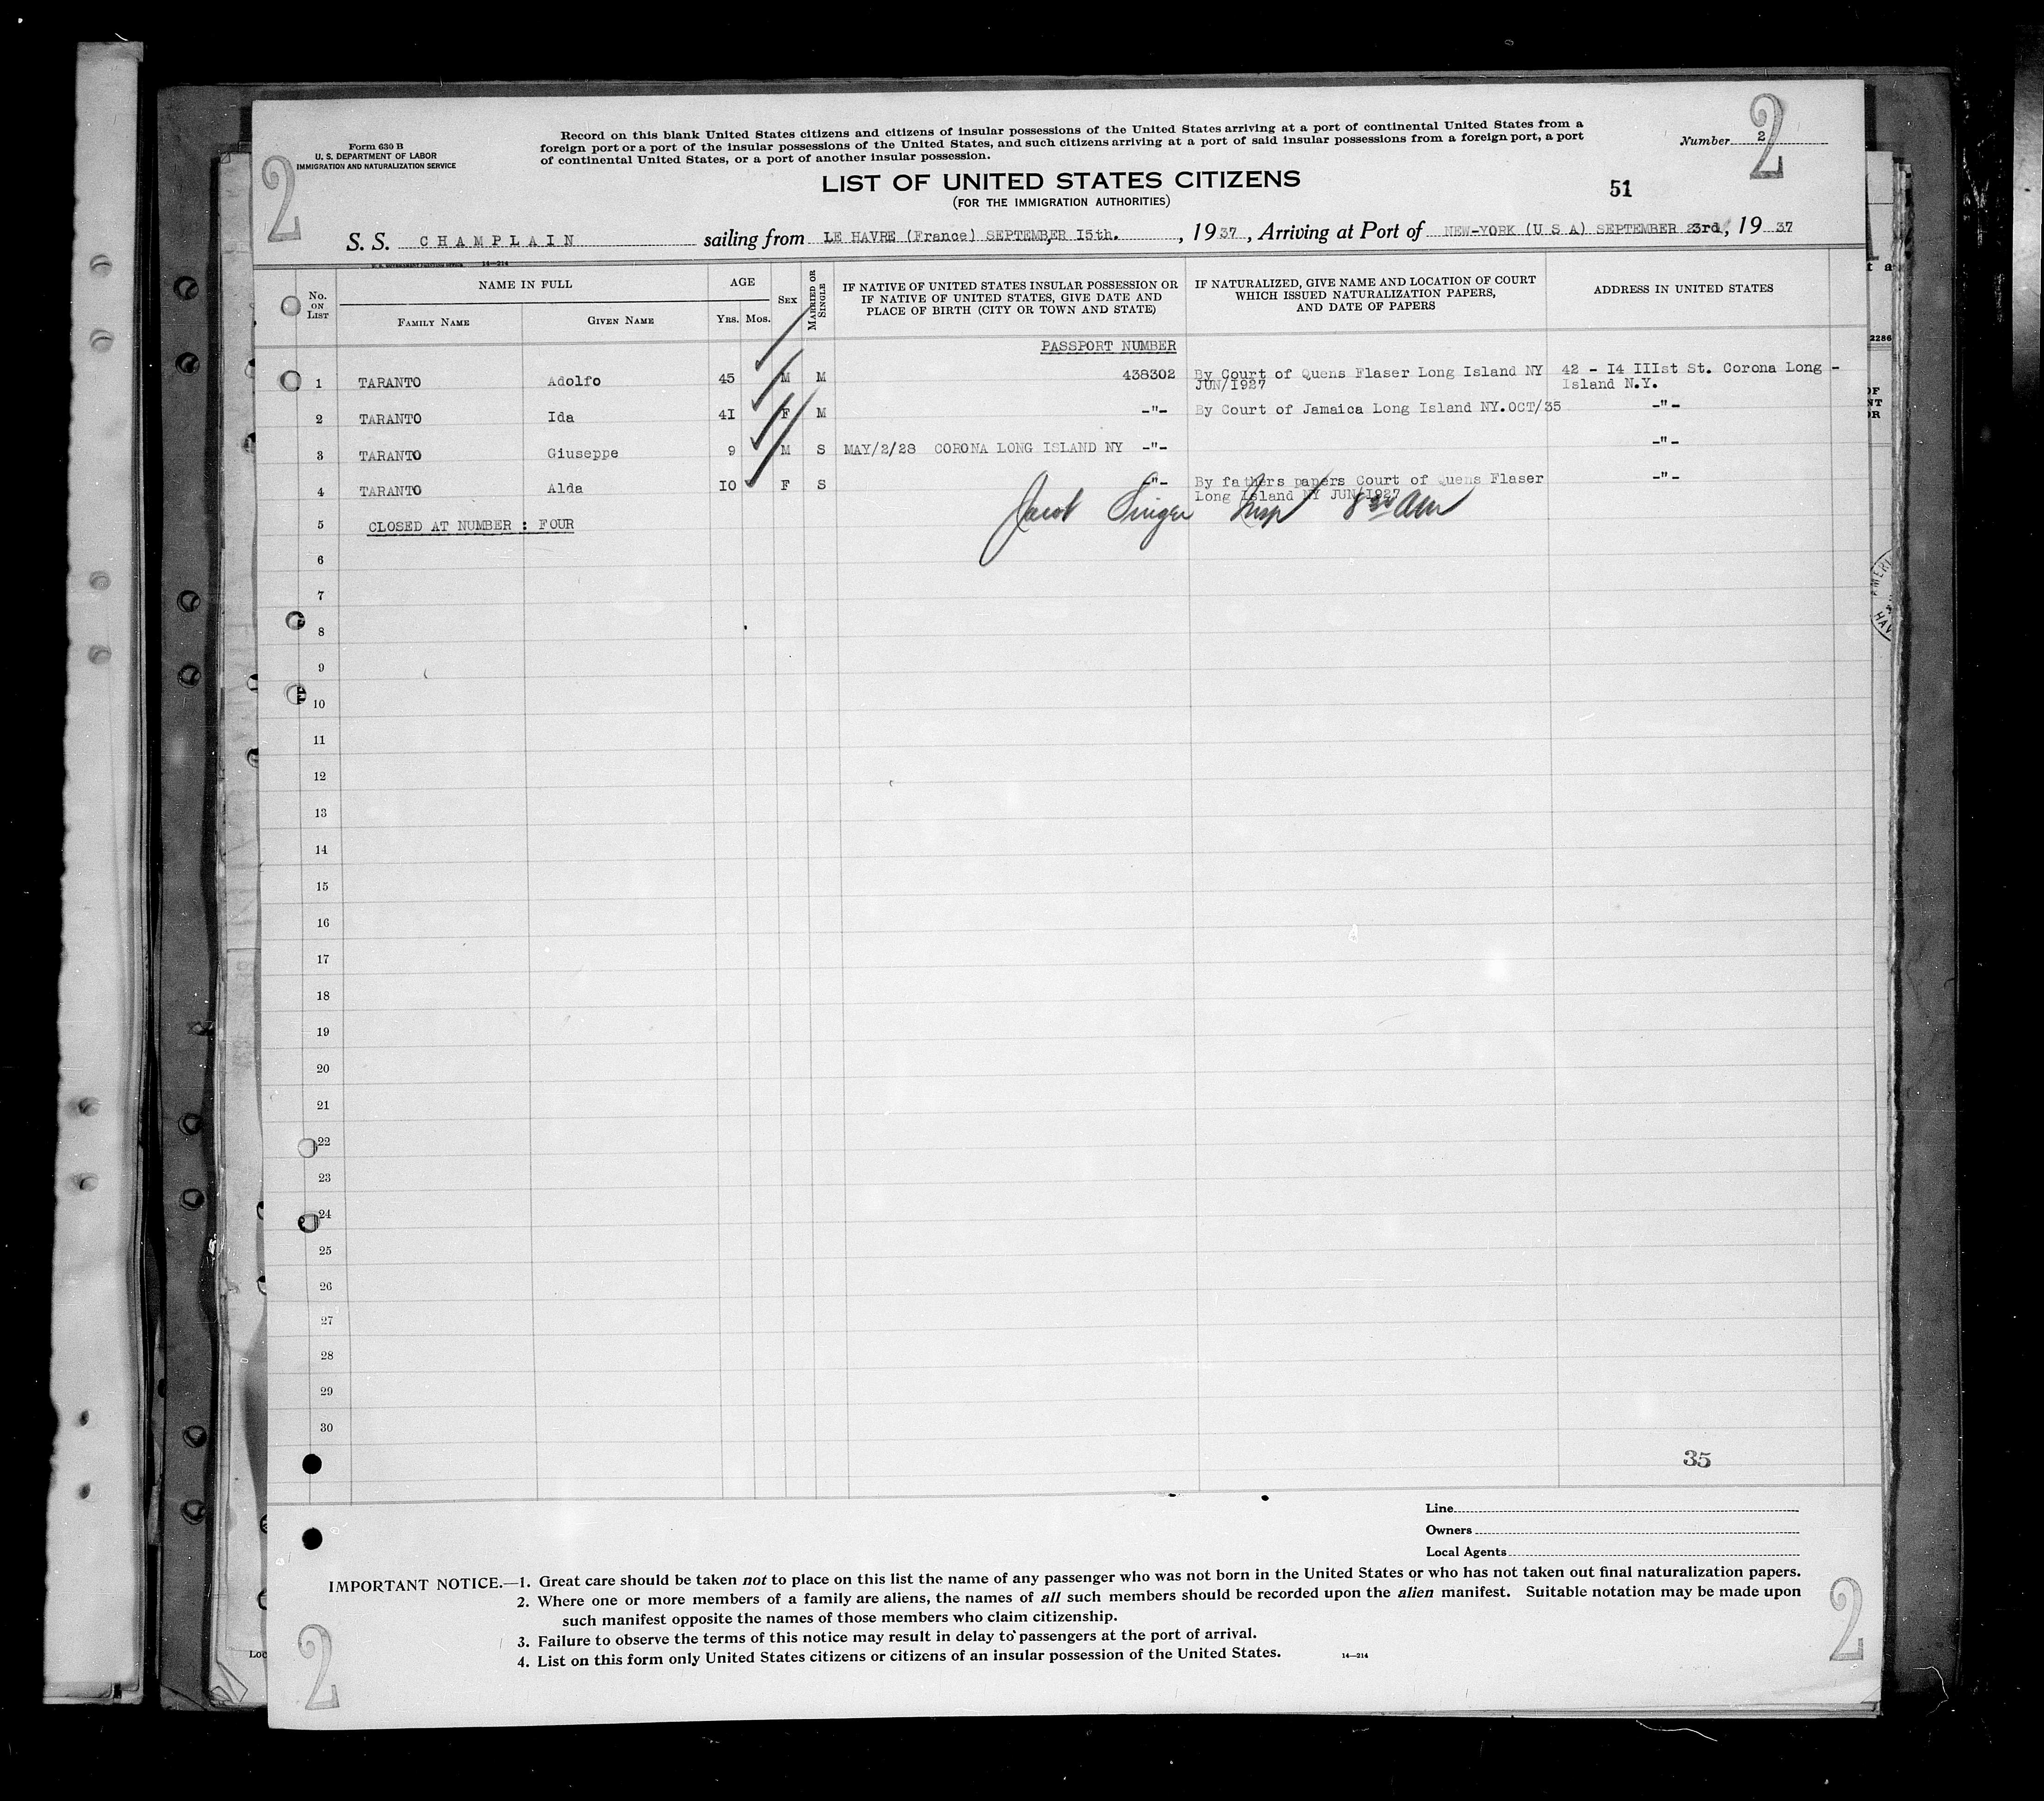 Form 630 B
U. S. DEPARTMENT OF LABOR
IMMIGRATION AND NATURALIZATION SERVICE
2
Record on this blank United States citizens and citizens of insular possessions of the United States arriving at a port of continental United States from a
foreign port or a port of the insular possessions of the United States, and such citizens arriving at a port of said insular possessions from a foreign port, a port
of continental United States, or a port of another insular possession.
Number 2
2
LIST OF UNITED STATES CITIZENS
(FOR THE IMMIGRATION AUTHORITIES)
51
S. S. CHAMPLAIN sailing from LE HAVRE (France) SEPTEMBER 15th. , 1937 , Arriving at Port of NEW-YORK (U S A) SEPTEMBER 23rd, 1937
14—214
No. ON LIST
NAME IN FULL
FAMILY NAME
GIVEN NAME
AGE
YRS. MOS.
SEX
MARRIED OR SINGLE
IF NATIVE OF UNITED STATES INSULAR POSSESSION OR
IF NATIVE OF UNITED STATES, GIVE DATE AND
PLACE OF BIRTH (CITY OR TOWN AND STATE)
IF NATURALIZED, GIVE NAME AND LOCATION OF COURT
WHICH ISSUED NATURALIZATION PAPERS,
AND DATE OF PAPERS
ADDRESS IN UNITED STATES
PASSPORT NUMBER
1 TARANTO Adolfo 45 M M 438302 By Court of Quens Flaser Long Island NY 42 - I4 IIIst St. Corona Long -
JUN/I927 Island N.Y.
2 TARANTO Ida 4I F M -"- By Court of Jamaica Long Island NY.OCT/35 -"-
3 TARANTO Giuseppe 9 M S MAY/2/28 CORONA LONG ISLAND NY -"- -"-
4 TARANTO Alda I0 F S -"- By fathers papers Court of Quens Flaser -"-
Long Island NY JUN/I927
Jacob Singer Insp 8 30 am
5 CLOSED AT NUMBER : FOUR
6
7
8
9
10
11
12
13
14
15
16
17
18
19
20
21
22
23
24
25
26
27
28
29
30
35
Line
Owners
Local Agents
IMPORTANT NOTICE.—1. Great care should be taken not to place on this list the name of any passenger who was not born in the United States or who has not taken out final naturalization papers.
2. Where one or more members of a family are aliens, the names of all such members should be recorded upon the alien manifest. Suitable notation may be made upon
such manifest opposite the names of those members who claim citizenship.
3. Failure to observe the terms of this notice may result in delay to passengers at the port of arrival.
4. List on this form only United States citizens or citizens of an insular possession of the United States.
14—214
2
2
2286
Loc